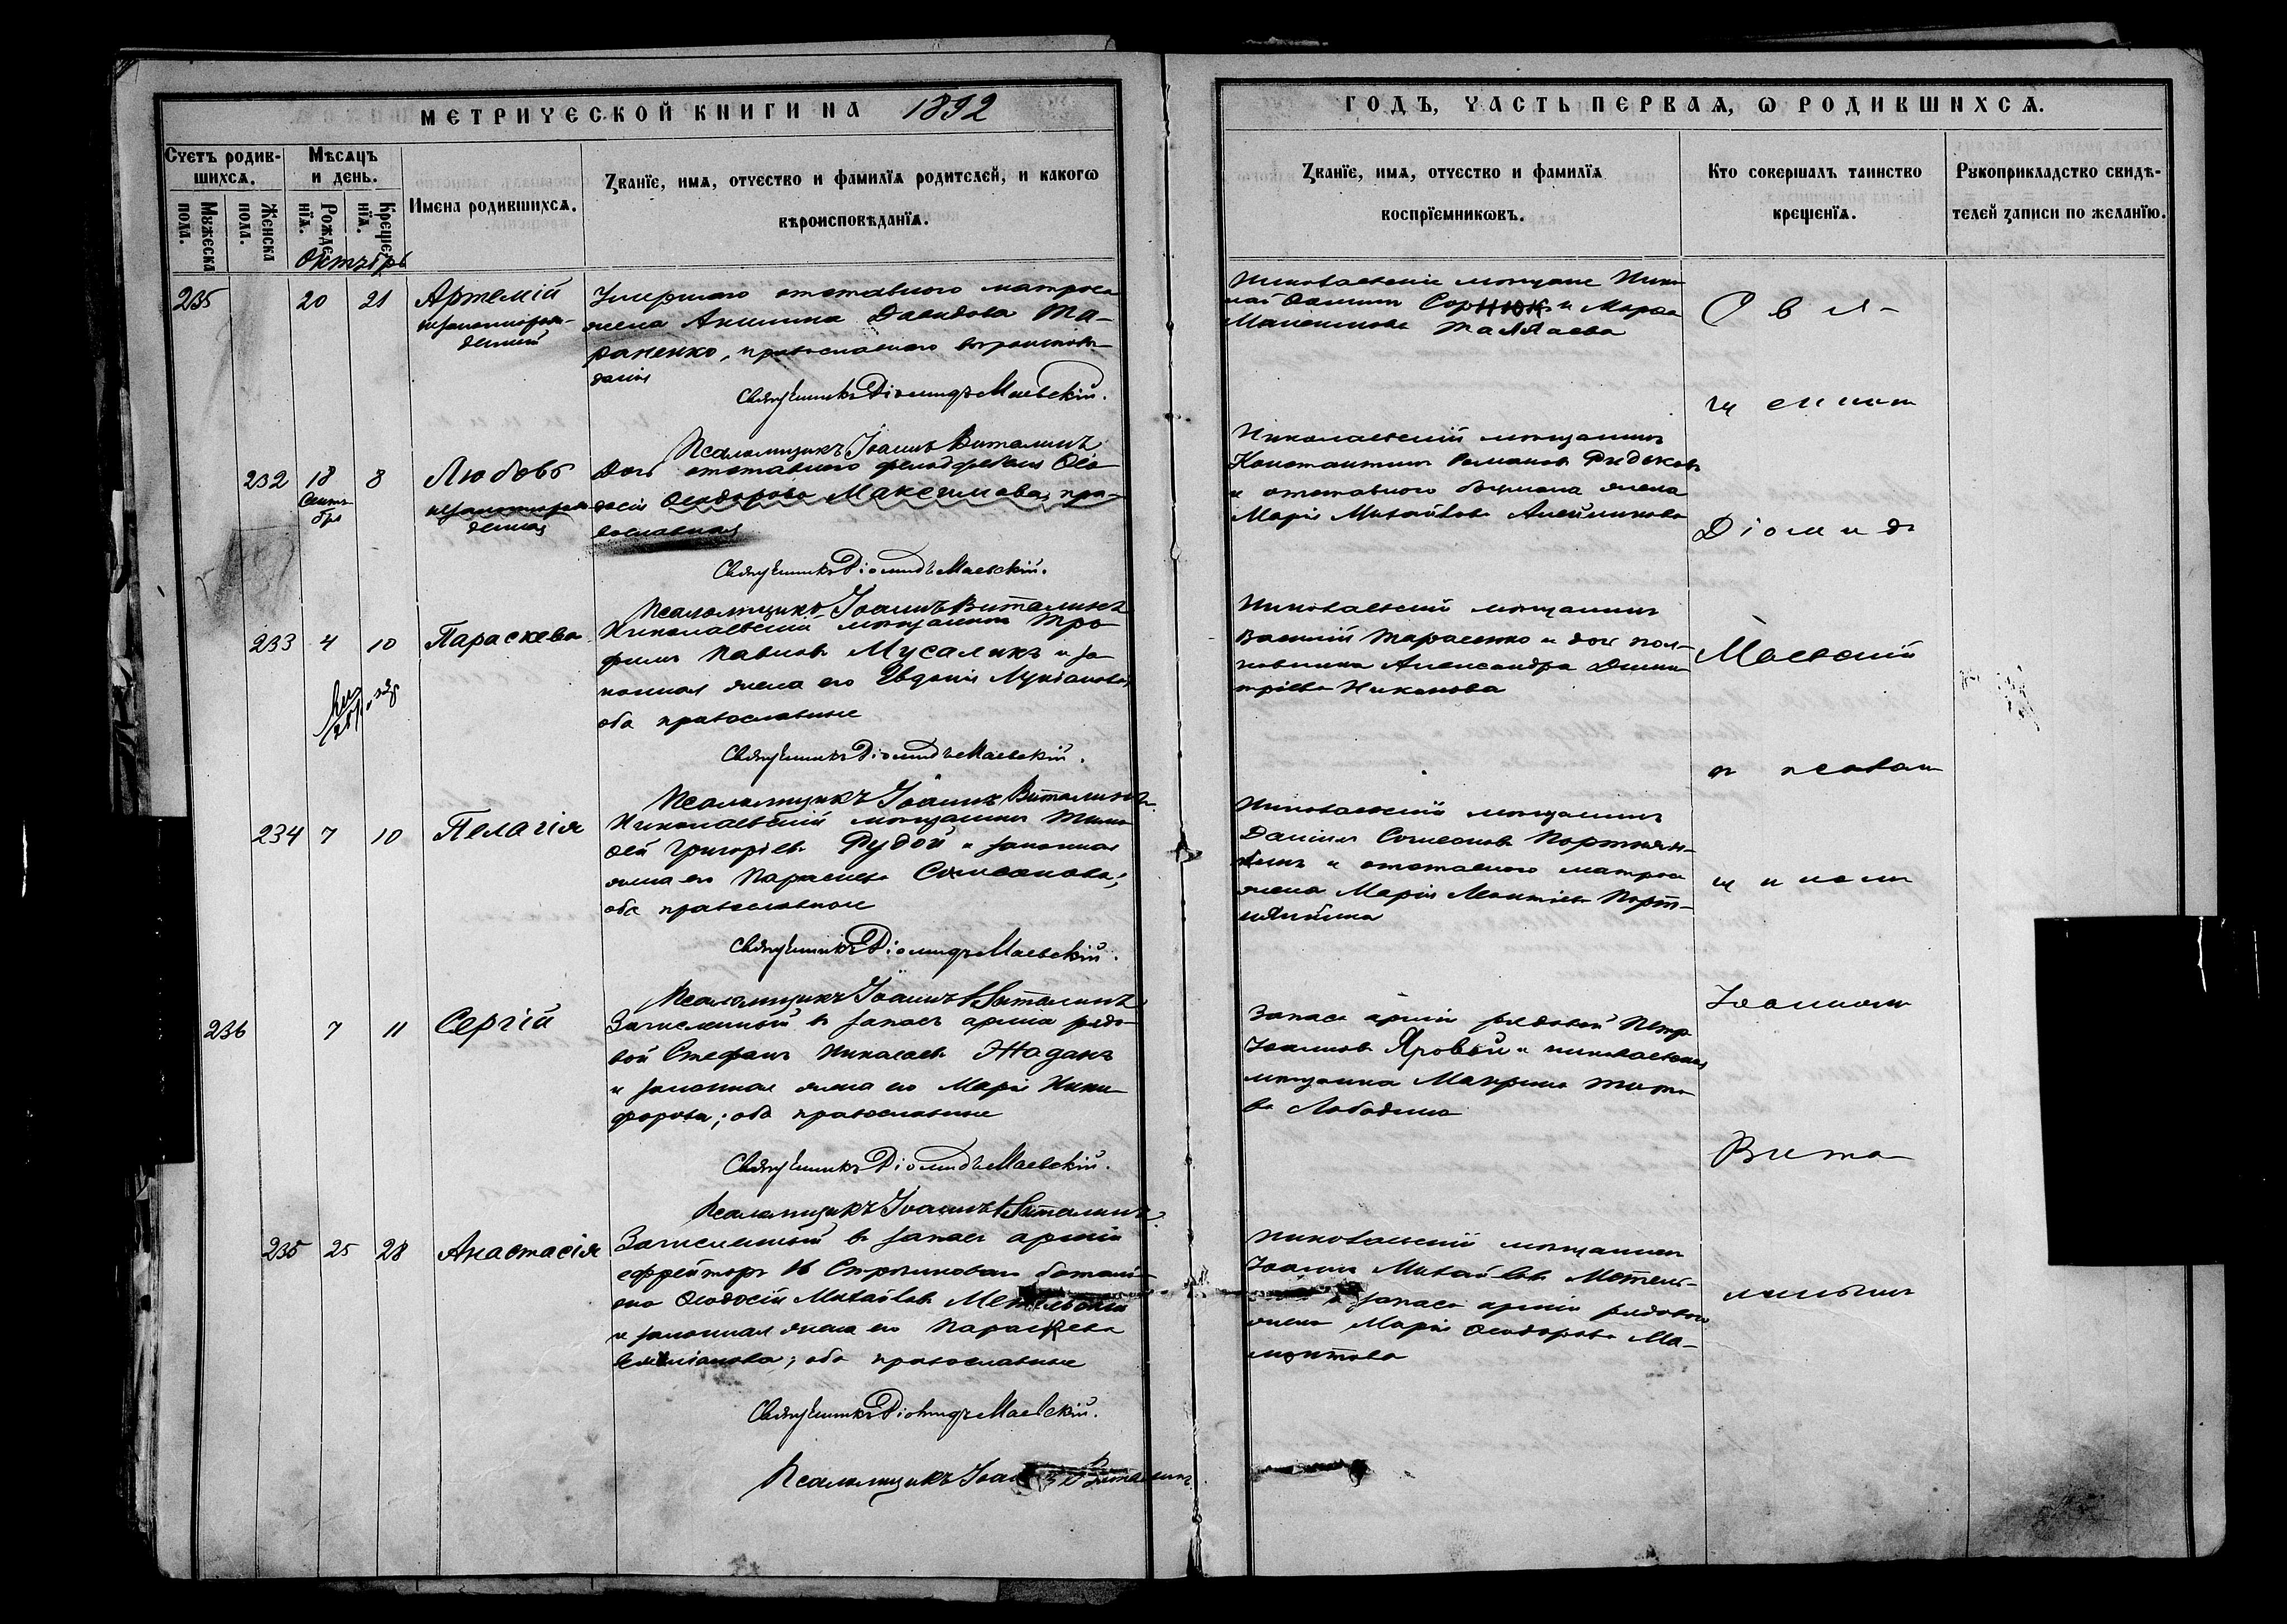 МЕТРИЧЕСКОЙ КНИГИ НА 1892
ГОДЪ, ЧАСТЬ ПЕРВАѦ, Ѡ РОДИВШИХСѦ.
Счетъ родив-
шихсѧ.
Мужеска
пола.
Женска
пола.
Мѣсѧцъ
и день.
Рожде-
нїѧ.
Крещє-
нїѧ.
Имена родившихсѧ.
Званїе, имѧ, отчество и фамилїѧ родителей, и какогѡ
вѣроисповѣданїѧ.
Званїе, имѧ, отчество и фамилїѧ
воспрїемникѡвъ.
Кто совершалъ таинство
крещенїѧ.
Рукоприкладство свидѣ-
телей записи по желанїю.
Октябрь
235 20 21 Артемій
незаконнорож-
денный
Умершаго отставного матроса
жена Акилина Давидова Та-
раненко, православнаго вѣроисповѣ-
данія
Священникъ Діомидъ Маевскій.
Псаломщикъ Іоаннъ Виталинъ
Николаевскіе мѣщане Нико-
лай и Марѳа
232 18 8 Любовь
Сентя-
бря
незаконнорож-
денная
Дочь отставного фельдфебеля Ѳео-
досія Ѳеодорова Максимова, пра-
вославная
Священникъ Діомидъ Маевскій.
Псаломщикъ Іоаннъ Виталинъ
Николаевскій мѣщанинъ
Константинъ Романовъ
и отставного боцмана жена
Марія Михайлова Алейникова
233 4 10 Параскева
Николаевскій мѣщанинъ Тро-
фимъ Павловъ Мусаликъ и за-
конная жена его Евдокія Лукіанова,
оба православные
Священникъ Діомидъ Маевскій.
Псаломщикъ Іоаннъ Виталинъ
Николаевскій мѣщанинъ
Василій Тарасенко и дочь пол-
ковника Александра Дими-
тріева Никонова
234 7 10 Пелагія
Николаевскій мѣщанинъ Тимо-
ѳей Григорьевъ Рудой и законная
жена его Параскева Симеонова,
оба православные
Священникъ Діомидъ Маевскій.
Псаломщикъ Іоаннъ Виталинъ
Николаевскій мѣщанинъ
Даніилъ Симеоновъ Портнян-
кинъ и отставного матроса
жена Марія Леонтіева Порт-
нянкина
236 7 11 Сергій
Зачисленный въ запасъ арміи рядо-
вой Стефанъ Николаевъ Жаданъ
и законная жена его Марія Ники-
форова; оба православные
Священникъ Діомидъ Маевскій.
Псаломщикъ Іоаннъ Виталинъ
Запаса арміи рядовой Петръ
Іоанновъ Яровой и николаевская
мѣщанка Мавра Тито-
ва Лободина
235 25 28 Анастасія
Зачисленный въ запасъ арміи
ефрейторъ 16 Стрѣлковаго баталі-
она Ѳеодосій Михайловъ
и законная жена его Параскева
оба православные
Священникъ Діомидъ Маевскій.
Псаломщикъ Іоаннъ Виталинъ
Николаевскій мѣщанинъ
Іоаннъ Михайловъ Метель-
запаса арміи рядового
жена Марія Ѳеодорова Ма-
монтова
Свя-
щенникъ
Діомидъ
Маевскій
съ псалом-
щикомъ
Іоанномъ
Вита-
линымъ